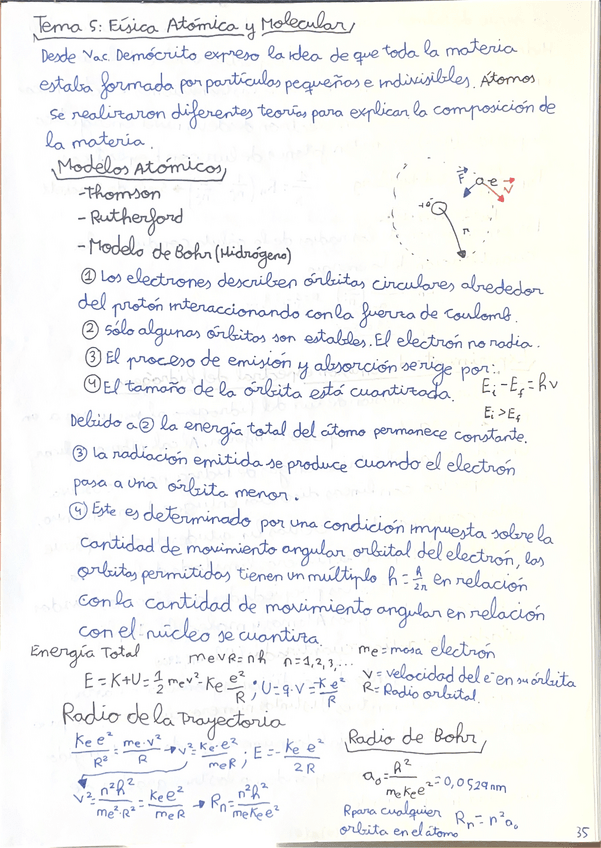 Tema 5: Física Atómica y Molecular
Desde V a.c. Demócrito expreso la idea de que toda la materia
estaba formada por partículas pequeñas e indivisibles. Átomos
Se realizaron diferentes teorías para explicar la composición de
la materia.
Modelos Atómicos
-Thomson
- Rutherford
- Modelo de Bohr (Hidrógeno)
F e v
+e r
① Los electrones describen órbitas circulares alrededor
del protón interaccionando con la fuerza de Coulomb.
② Sólo algunas órbitas son estables. El electrón no radia.
③ El proceso de emisión y absorción se rige por:
Ei - Ef = hν
④ El tamaño de la órbita está cuantizada.
Ei > Ef
Debido a ② la energía total del átomo permanece constante.
③ la radiación emitida se produce cuando el electrón
pasa a una órbita menor.
④ Este es determinado por una condición impuesta sobre la
cantidad de movimiento angular orbital del electrón, las
órbitas permitidas tienen un múltiplo ħ = h/2π en relación
con la cantidad de movimiento angular en relación
con el núcleo se cuantiza.
Energía Total me v R = nħ n = 1,2,3,... me = masa electrón
E = K+U = 1/2 me v² - Ke e²/R ; U = q·V = -K e²/R
V = velocidad del e⁻ en su órbita
R = Radio orbital
Radio de la Trayectoria
Ke e²/R² = me·v²/R → v² = Ke·e²/meR ; E = - Ke e²/2R
v² = n²ħ²/me²·R² = Ke e²/meR → Rn = n²ħ²/me Ke e²
Radio de Bohr
a₀ = ħ²/me Ke e² = 0,0529 nm
R para cualquier
órbita en el átomo Rn = n² a₀
35